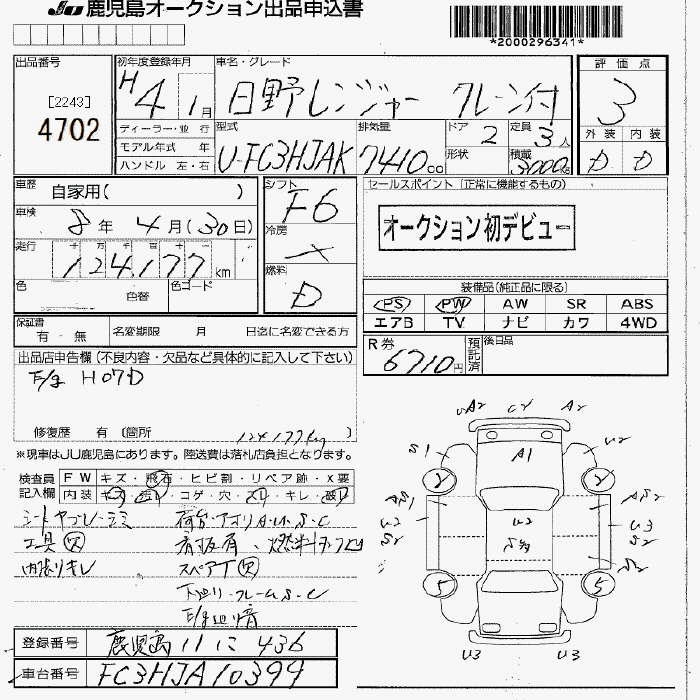 JU 鹿児島オークション出品申込書
*2000296341*
出品番号
[2243]
4702
初年度登録年月
H4 1月
車名・グレード
日野レンジャー クレーン付
評価点
3
外装 内装
D D
ディーラー・並 行
モデル年式 年
ハンドル 左・右
型式
U-FC3HJAK
排気量
7410cc
ドア
2
形状
定員
3人
積載
3000kg
車歴
自家用( )
車検
8年 4月(30日)
走行
124,177km
色
色替
色コード
シフト
F6
冷房
×
燃料
D
セールスポイント (正常に機能するもの)
オークション初デビュー
装備品(純正品に限る)
PS PW AW SR ABS
エアB TV ナビ カワ 4WD
保証書
有 - 無
名変期限 月 日迄に名変できる方
R券
6710円
預託済
後日品
出品店申告欄(不良内容・欠品など具体的に記入して下さい)
E/g H07D
修復歴 有 (箇所
124177kg)
※現車はJU鹿児島にあります。陸送費は落札店負担となります。
検査員記入欄
FW キズ・飛石・ヒビ割・リペア跡・X要
内装 キズ・汚れ・コゲ・穴・スレ・キレ・破れ
シートヤブレ・シミ
工具欠
内張りキレ
荷台・アオリA・U・S・C
スペアT欠
下廻り・フレームS・C
登録番号
鹿児島 11 に 436
車台番号
FC3HJA10399
uA2 C2 A2
S1 A1 U2
2 2
AS1 AS2
U2 S2 U2 U3 S2
S2
5 5
U3 U3